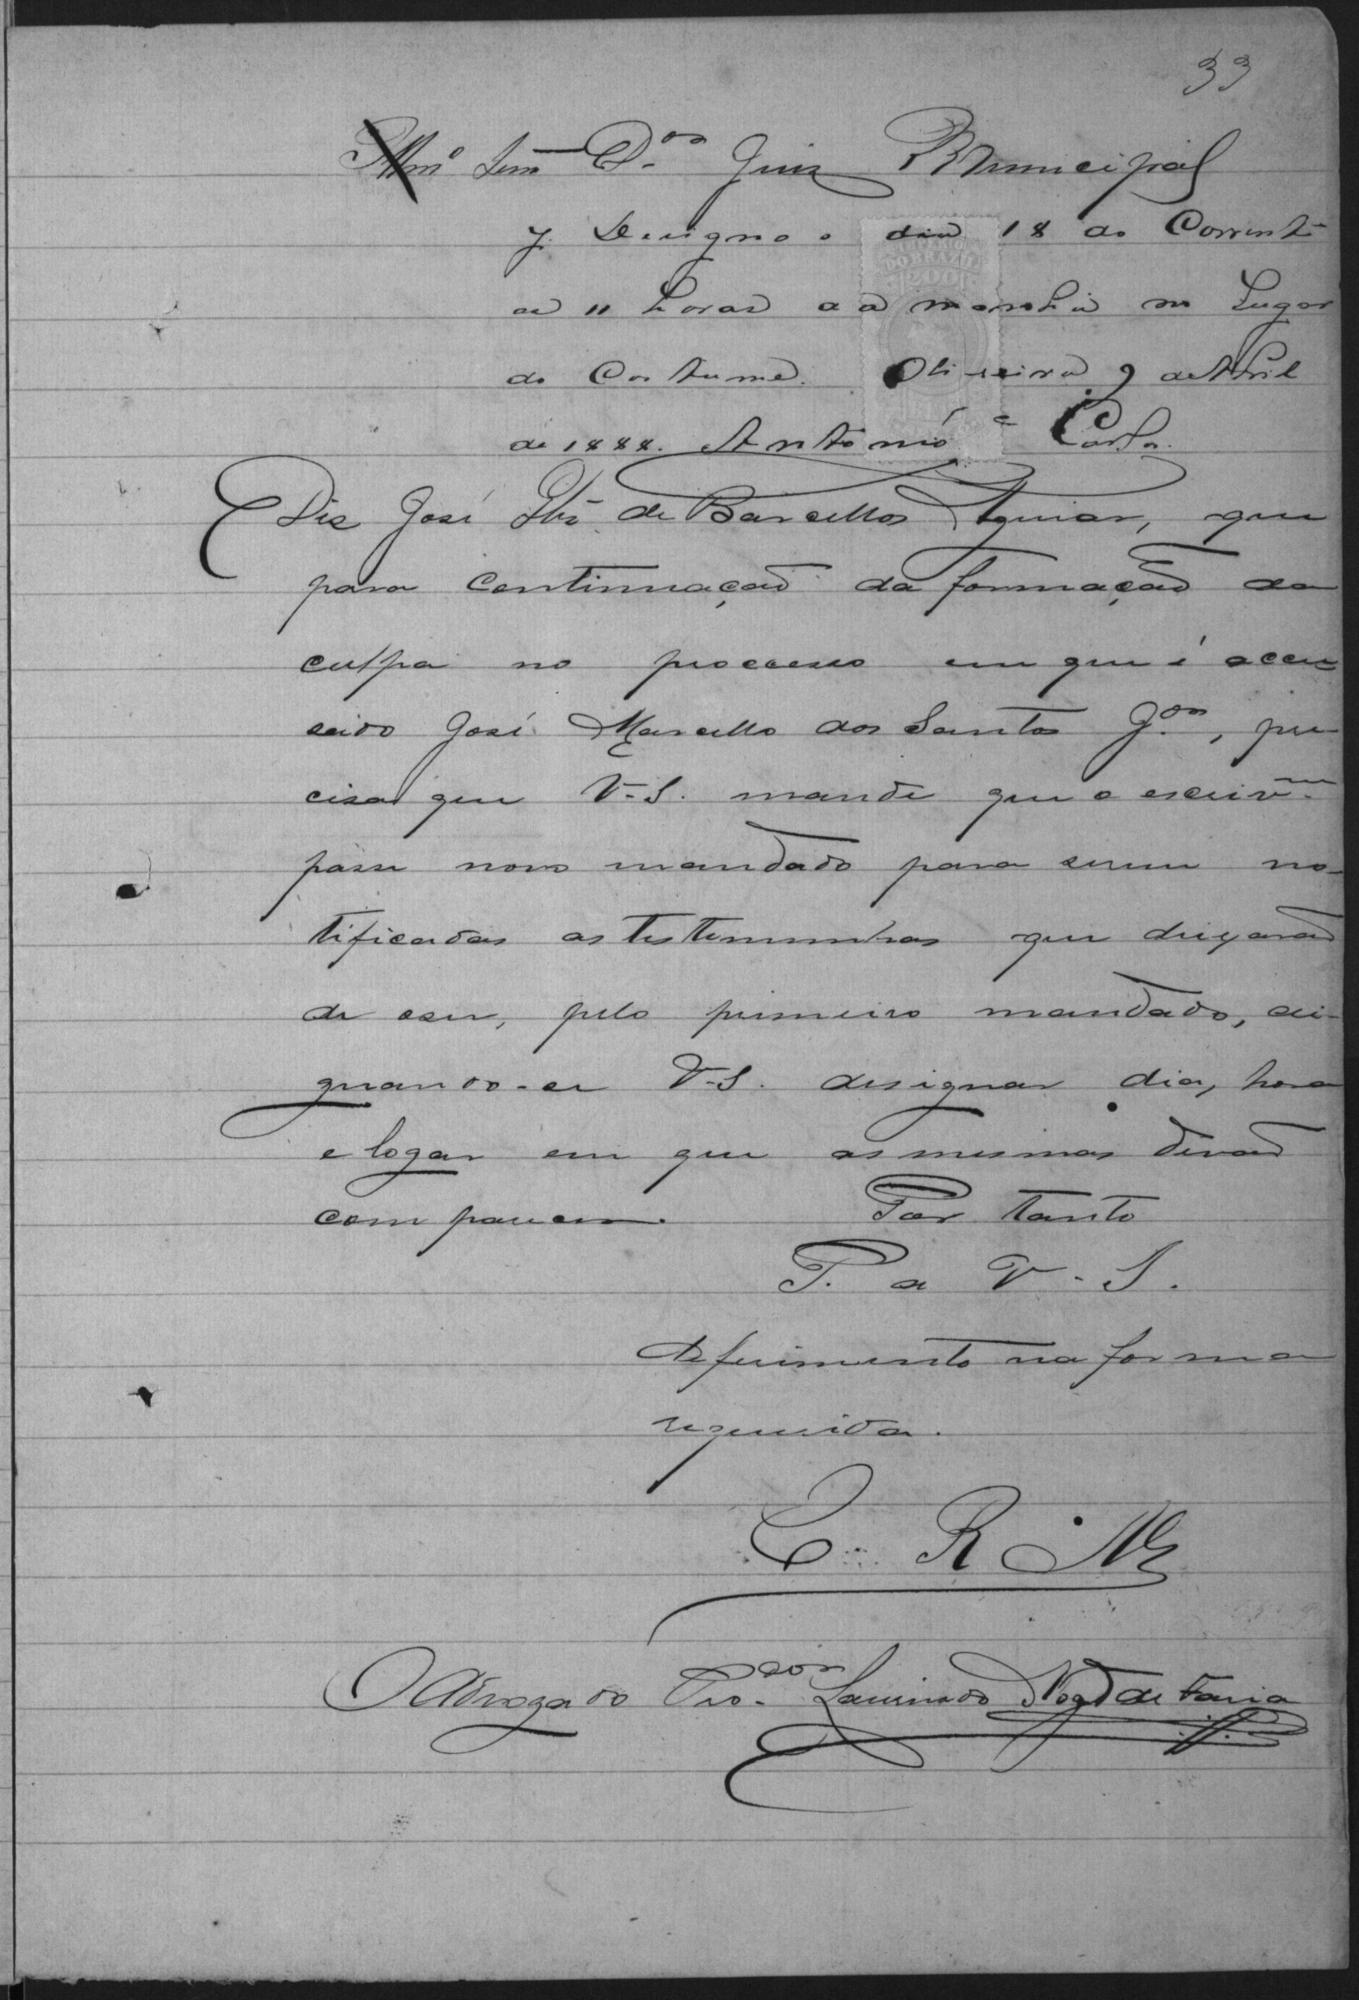 33
Illmo Snr. Dor. Juiz Municipal
J. Designo o dia 18 do Corrente
as 11 horas da manhã no Lugar
do Costume. Oliveira 9 de Abril
de 1888. Antonio Carlos
IMPERIO
DO BRAZIL
200 RÉIS
Diz José de Barcellos Aguiar, que
para continuação da formação da
culpa no processo em que é accu
sado José Marcello dos Santos Jor., pre
cisa que V. S. mande que o escrivm
passe novo mandado para serem no-
tificadas as testemunhas que deixarão
de ser, pelo primeiro mandado, di-
gnando-se V. S. designar dia, hora
e logar em que as mesmas devão
comparecer. Por tanto
P. a V. S.
deferimento na forma
requerida.
E. R. Mce
O Advogado Prodor Laurindo Nogra de Faria